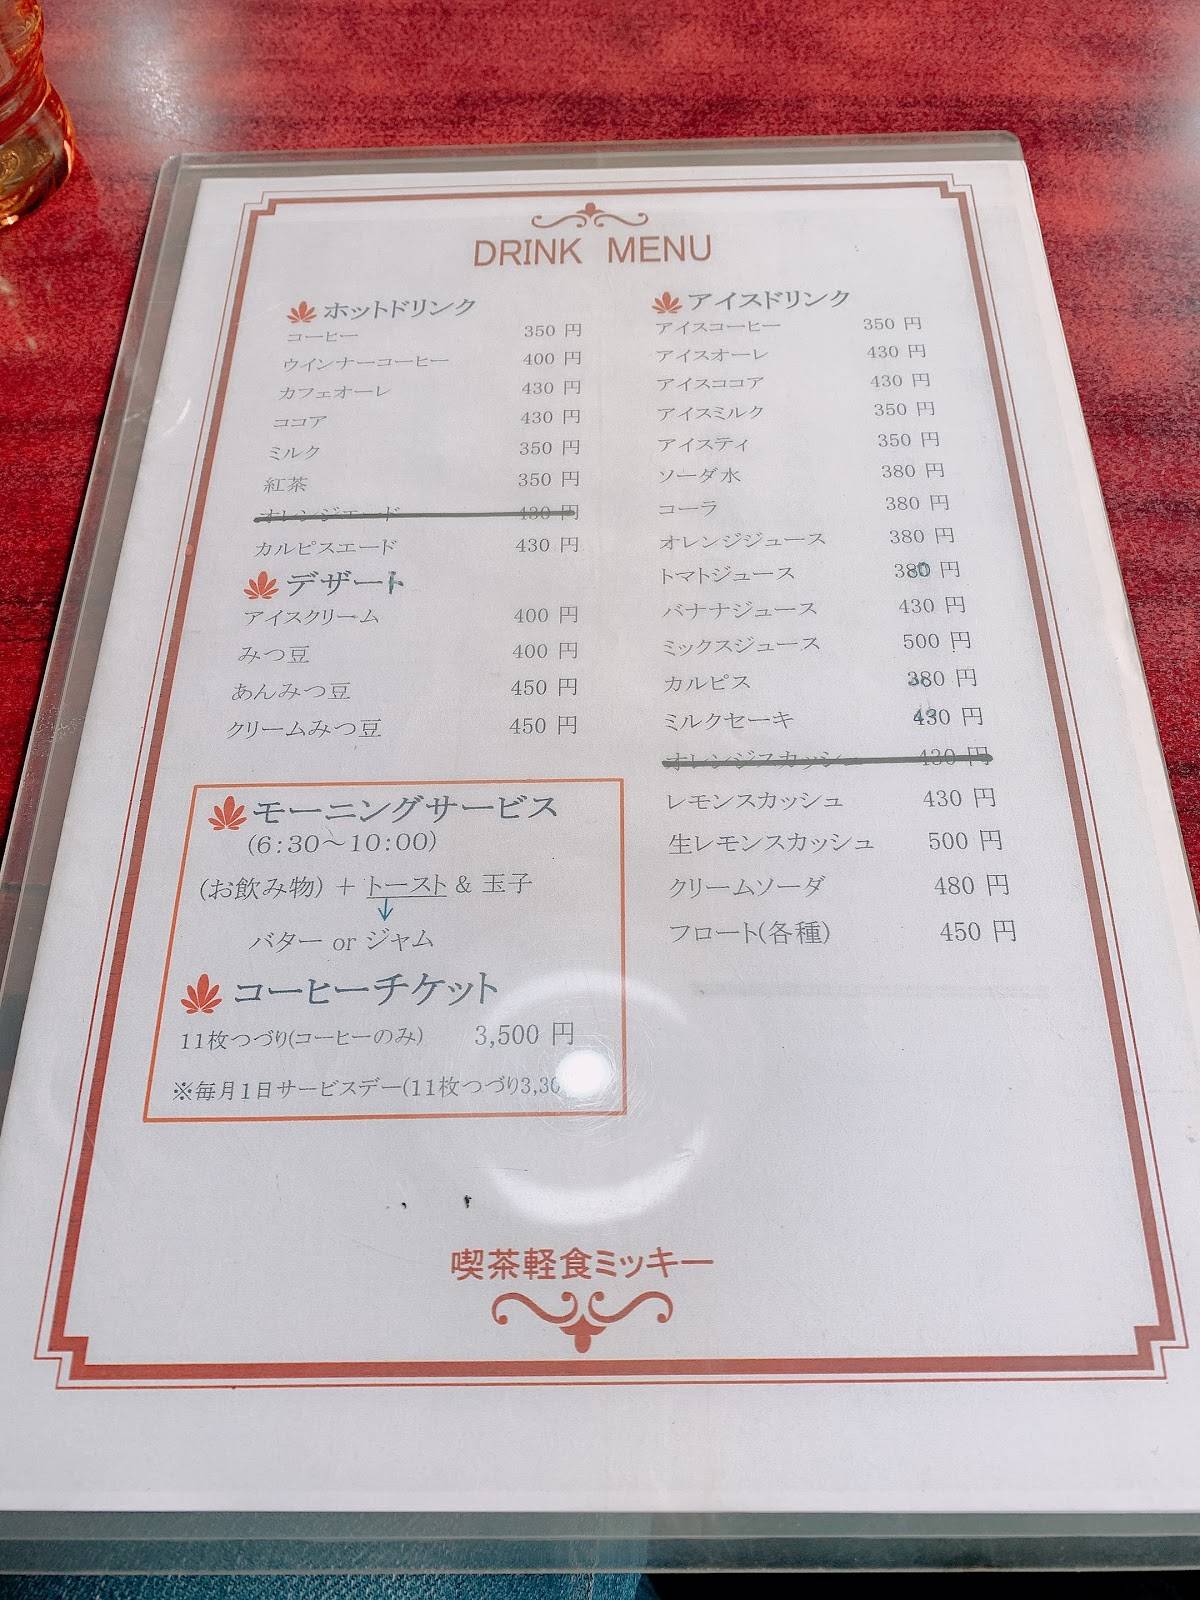 DRINK MENU
ホットドリンク
コーヒー 350 円
ウインナーコーヒー 400 円
カフェオーレ 430 円
ココア 430 円
ミルク 350 円
紅茶 350 円
オレンジエード 430 円
カルピスエード 430 円
デザート
アイスクリーム 400 円
みつ豆 400 円
あんみつ豆 450 円
クリームみつ豆 450 円
モーニングサービス
(6:30～10:00)
(お飲み物) + トースト & 玉子
バター or ジャム
コーヒーチケット
11枚つづり(コーヒーのみ) 3,500 円
※毎月1日サービスデー(11枚つづり3,30
アイスドリンク
アイスコーヒー 350 円
アイスオーレ 430 円
アイスココア 430 円
アイスミルク 350 円
アイスティ 350 円
ソーダ水 380 円
コーラ 380 円
オレンジジュース 380 円
トマトジュース 380 円
バナナジュース 430 円
ミックスジュース 500 円
カルピス 380 円
ミルクセーキ 430 円
オレンジスカッシュ 430 円
レモンスカッシュ 430 円
生レモンスカッシュ 500 円
クリームソーダ 480 円
フロート(各種) 450 円
喫茶軽食ミッキー